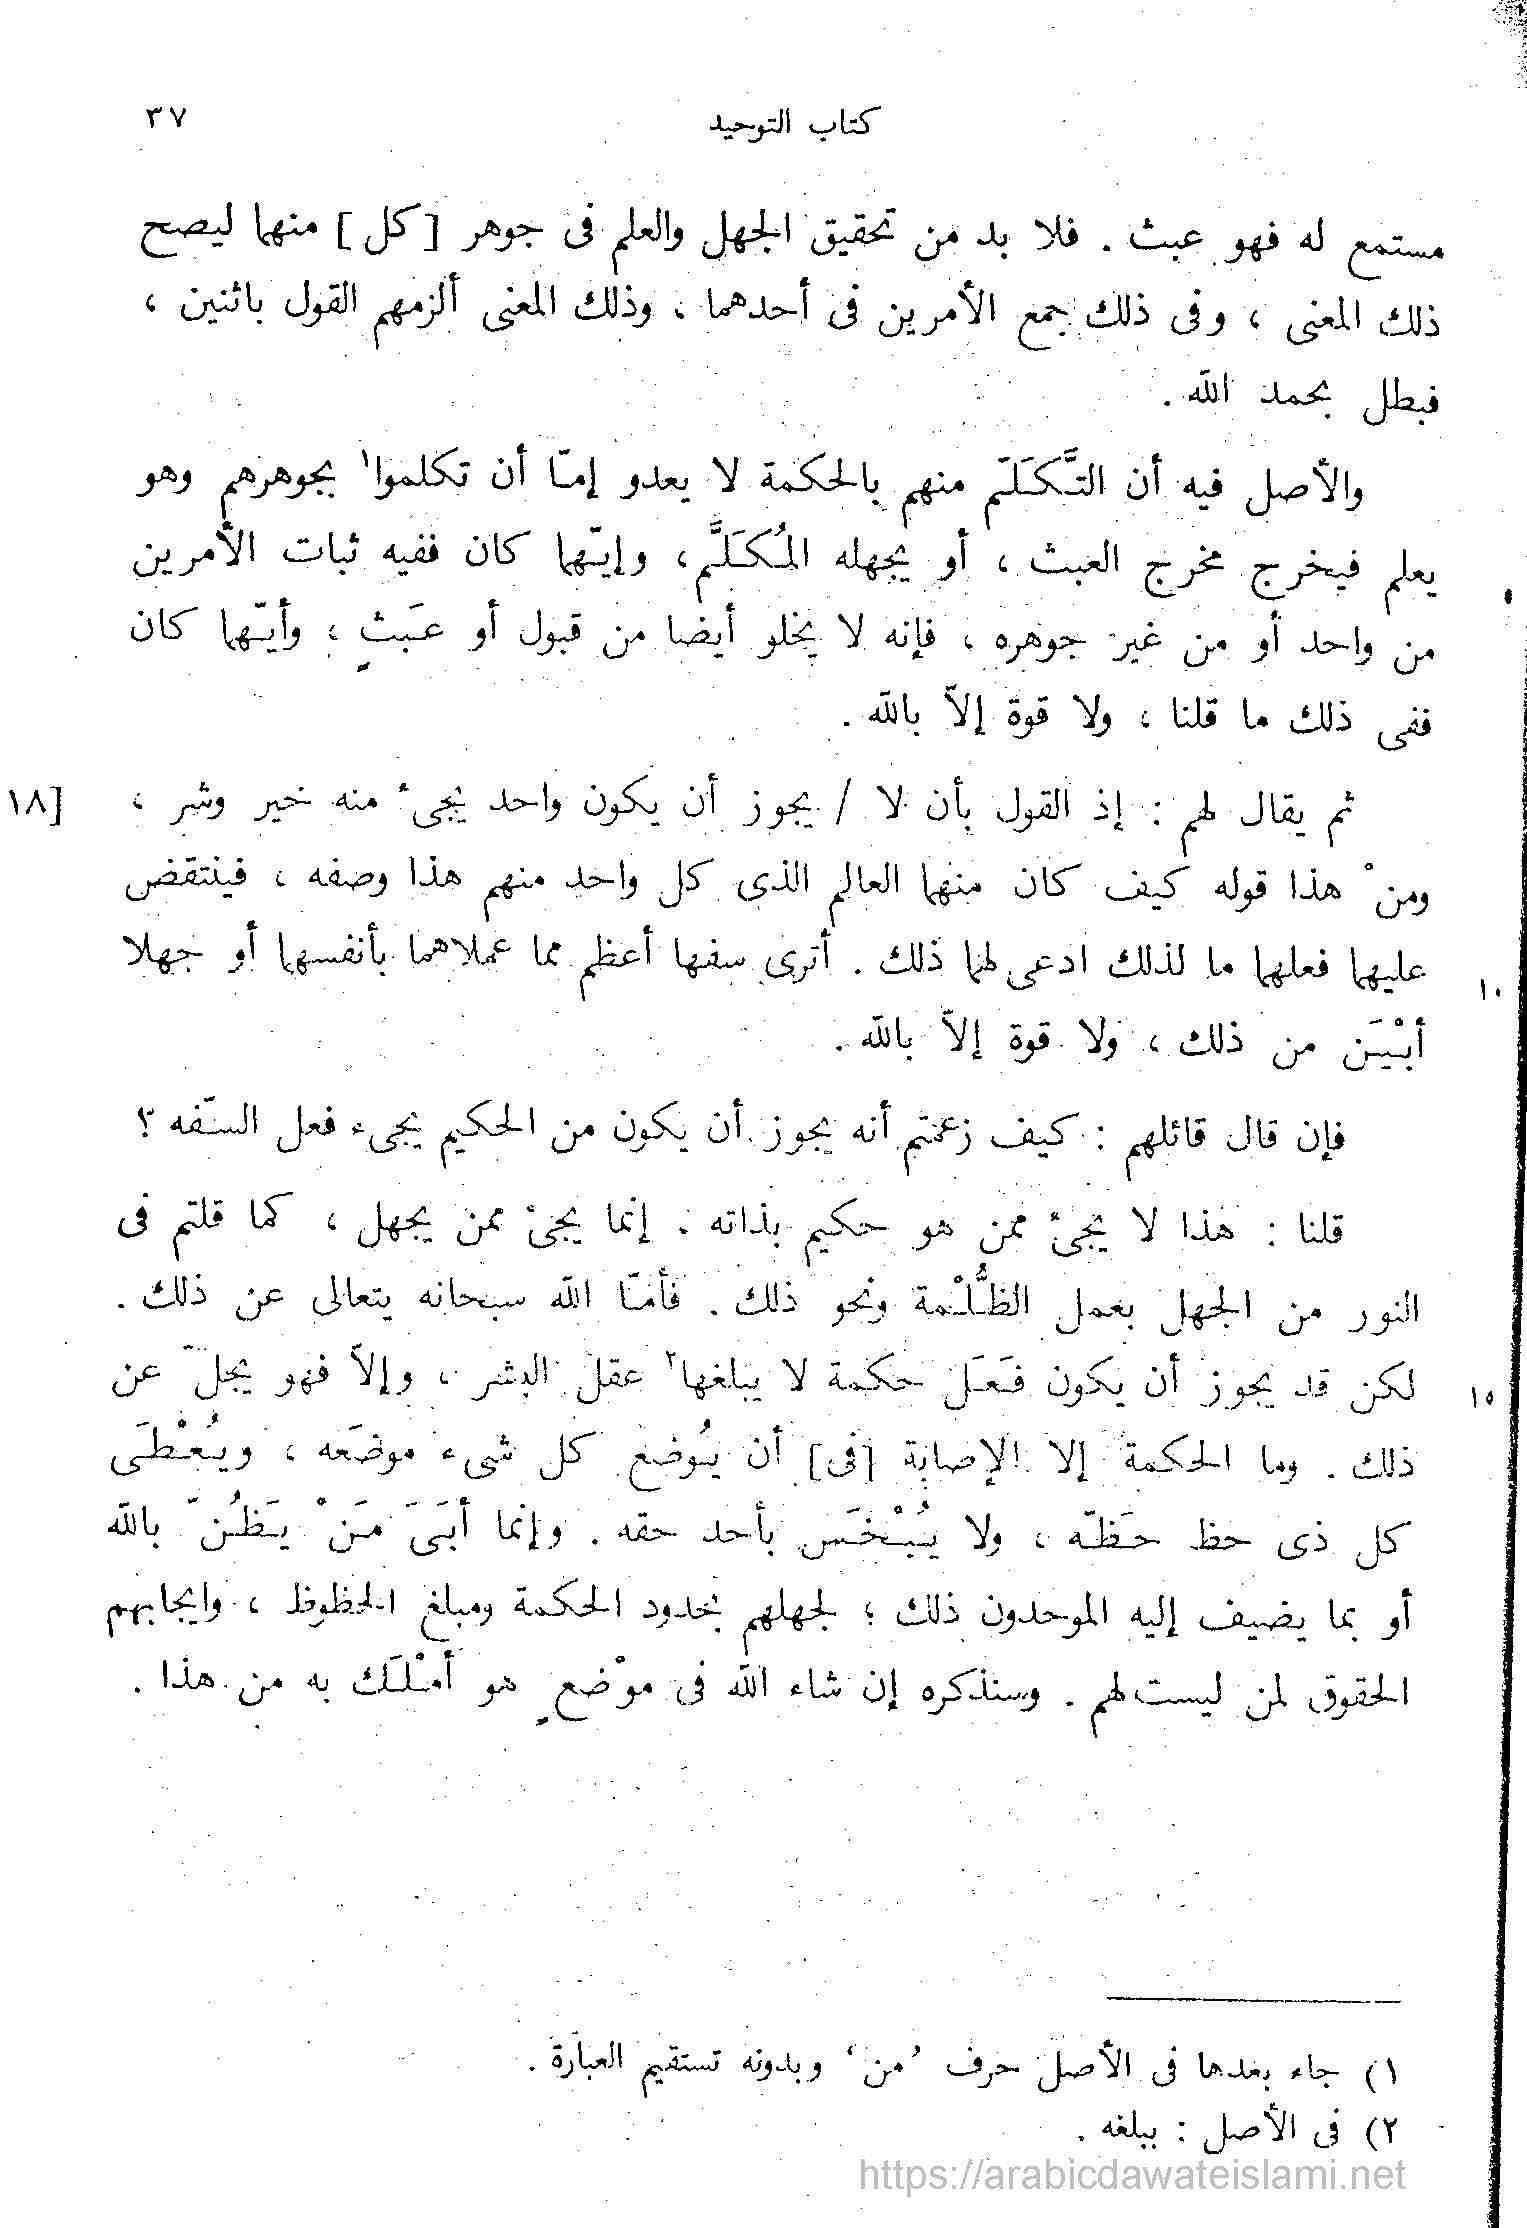 كتاب التوحيد ٣٧
مستمع له فهو عبث . فلا بد من تحقيق الجهل والعلم فى جوهر [ كل ] منهما ليصح
ذلك المعنى ، وفى ذلك جمع الأمرين فى أحدهما ، وذلك المعنى ألزمهم القول باثنين ،
فبطل بحمد الله .
والأصل فيه أن التَّكَلّم منهم بالحكمة لا يعدو إمّا أن تكلموا١ بجوهرهم وهو
يعلم فيخرج مخرج العبث ، أو يجهله المُكَلَّم، وإيّهما كان ففيه ثبات الأمرين
من واحد أو من غير جوهره ، فإنه لا يخلو أيضا من قبول أو عَبثٍ ، وأيّهما كان
ففى ذلك ما قلنا ، ولا قوة إلاّ بالله .
ثم يقال لهم : إذ القول بأن لا / يجوز أن يكون واحد يجىء منه خير وشر ، [١٨
ومنْ هذا قوله كيف كان منهما العالم الذى كل واحد منهم هذا وصفه ، فينتقض
عليهما فعلهما ما لذلك ادعى لهما ذلك . أترى سفها أعظم مما عملاهما بأنفسهما أو جهلا ١٠
أبْيَن من ذلك ، ولا قوة إلاّ بالله .
فإن قال قائلهم : كيف زعمتم أنه يجوز أن يكون من الحكيم يجىء فعل السّفه ؟
قلنا : هذا لا يجىء ممن هو حكيم بذاته . إنما يجىء ممن يجهل ، كما قلتم فى
النور من الجهل بعمل الظُّلْمة ونحو ذلك . فأمّا الله سبحانه يتعالى عن ذلك .
لكن قد يجوز أن يكون فَعَل حكمة لا يبلغها٢ عقل البشر ، وإلاّ فهو يجلّ عن ١٥
ذلك . وما الحكمة إلا الإصابة [فى] أن يُوضع كل شىء موضَعه ، ويُعْطَى
كل ذى حظ حَظّه ، ولا يُبْخَس بأحد حقه . وإنما أبَىَ مَنْ يَظُنّ بالله
أو بما يضيف إليه الموحدون ذلك ؛ لجهلهم بحدود الحكمة ومبلغ الحظوظ ، وايجابهم
الحقوق لمن ليست لهم . وسنذكره إن شاء الله فى موْضعٍ هو أمْلَك به من هذا .
١) جاء بعدها فى الأصل حرف ’من‘ وبدونه تستقيم العبارة .
٢) فى الأصل : يبلغه .
https://arabicdawateislami.net